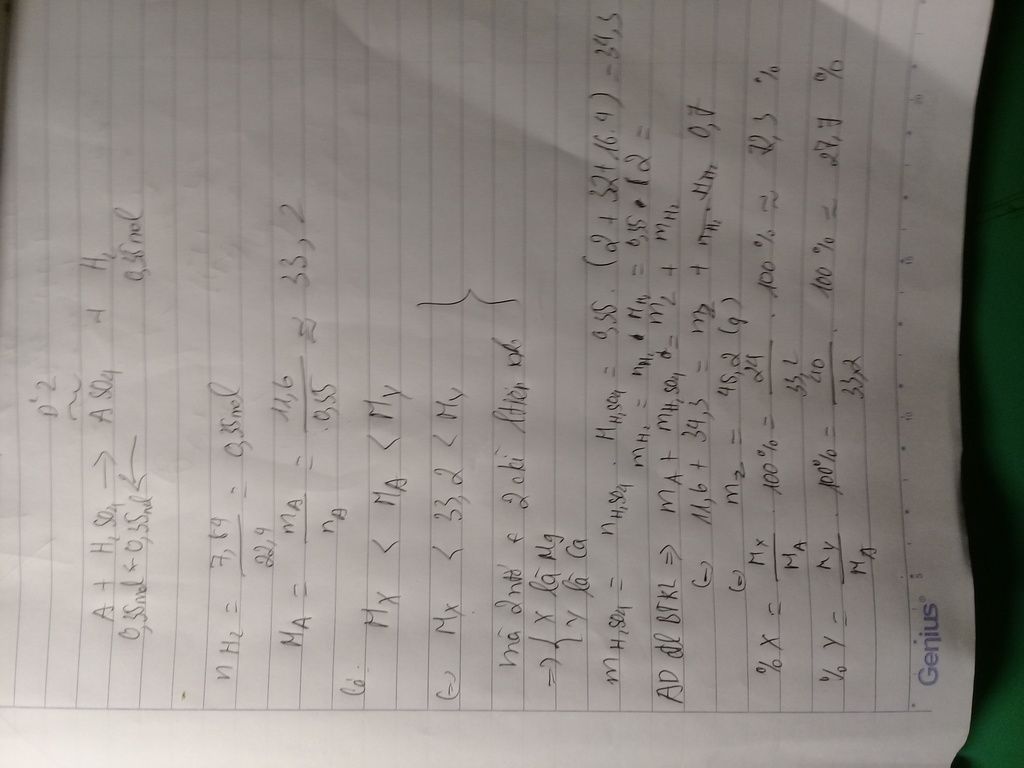 D'2
A + H₂SO₄ → ASO₄ + H₂
0,35mol ← 0,35mol ← 0,35mol
nH₂ = 7,84/22,4 = 0,35mol
MA = mA/nA = 11,6/0,35 ≈ 33,2
Có:
MX < MA < MY
(=) MX < 33,2 < MY }
mà 2 ntố € 2 chì liên tiếp
=> { X là Mg
Y là Ca
mH₂SO₄ = nH₂SO₄ . MH₂SO₄ = 0,35 . (2 + 32 + 16.4) = 34,3
mH₂ = nH₂ . MH₂ = 0,35 . 2 =
AD ĐL BTKL => mA + mH₂SO₄ = m2 + mH₂
(=) 11,6 + 34,3 = m2 + 0,7
(=) m2 = 45,2 (g)
% X = MX/MA . 100% = 24/33,2 . 100% ≈ 72,3 %
% Y = MY/MA . 100% = 40/33,2 . 100% = 27,7 %
Genius